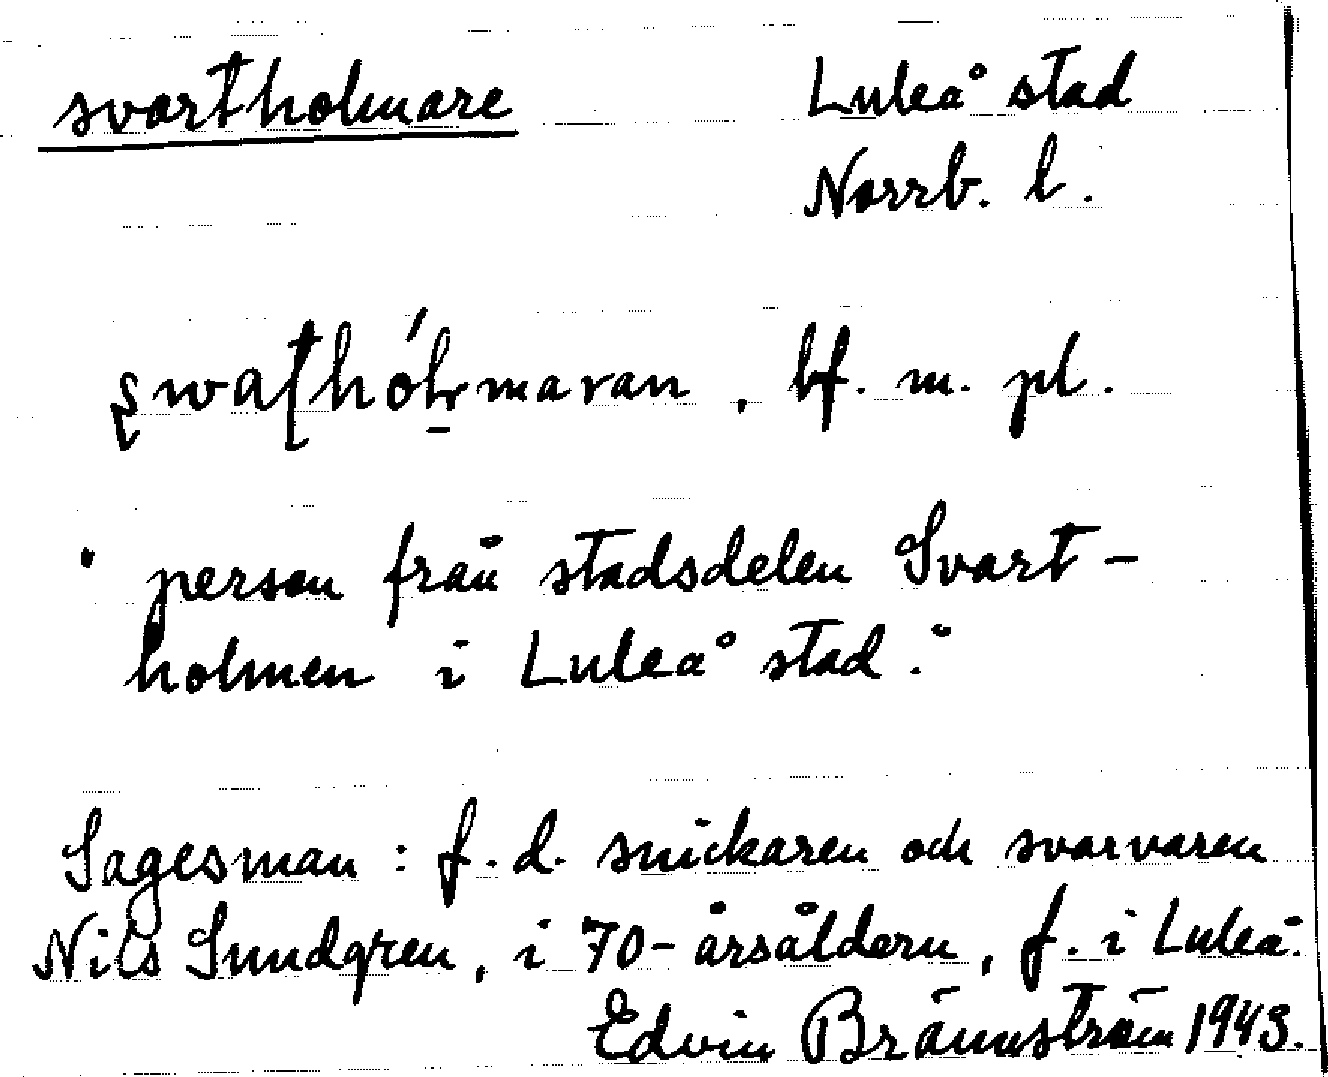 svartholmare
Luleå stad
Norrb. l.
bf. m. pl.
" person från stadsdelen Svart-
holmen i Luleå stad."
Sagesman: f. d. snickaren och svarvaren
Nils Sundgren, i 70-årsåldern, f. i Luleå.
Edvin Brännström 1943.